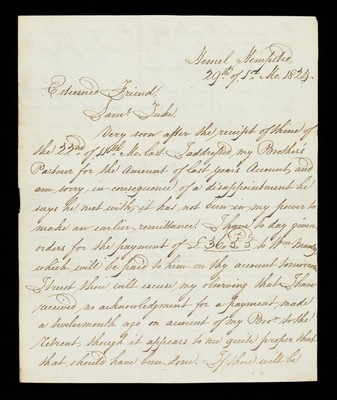 Hemel Hempstd.
29th. of 1st. Mo. 1824.
Esteemed Friend,
Saml. Tuke.
Very soon after the receipt of thine of
the 22nd. of 11th. Mo. last I addressed, my Brother's
Partner for the Amount of last years Account, and
am sorry, in consequence of a disappointment he
says he met with, it has not been in my power to
make an earlier remittance. I have to day given
orders for the payment of £.36.5.5 to Wm.
which will be paid to him on thy account tomorrow,
I trust thou will excuse my observing that I have
received no acknowledgment for a payment made
a twelvemonth ago on account of my Bror. to the
Retreat, though it appears to me quite proper that
that should have been done. If thou will be